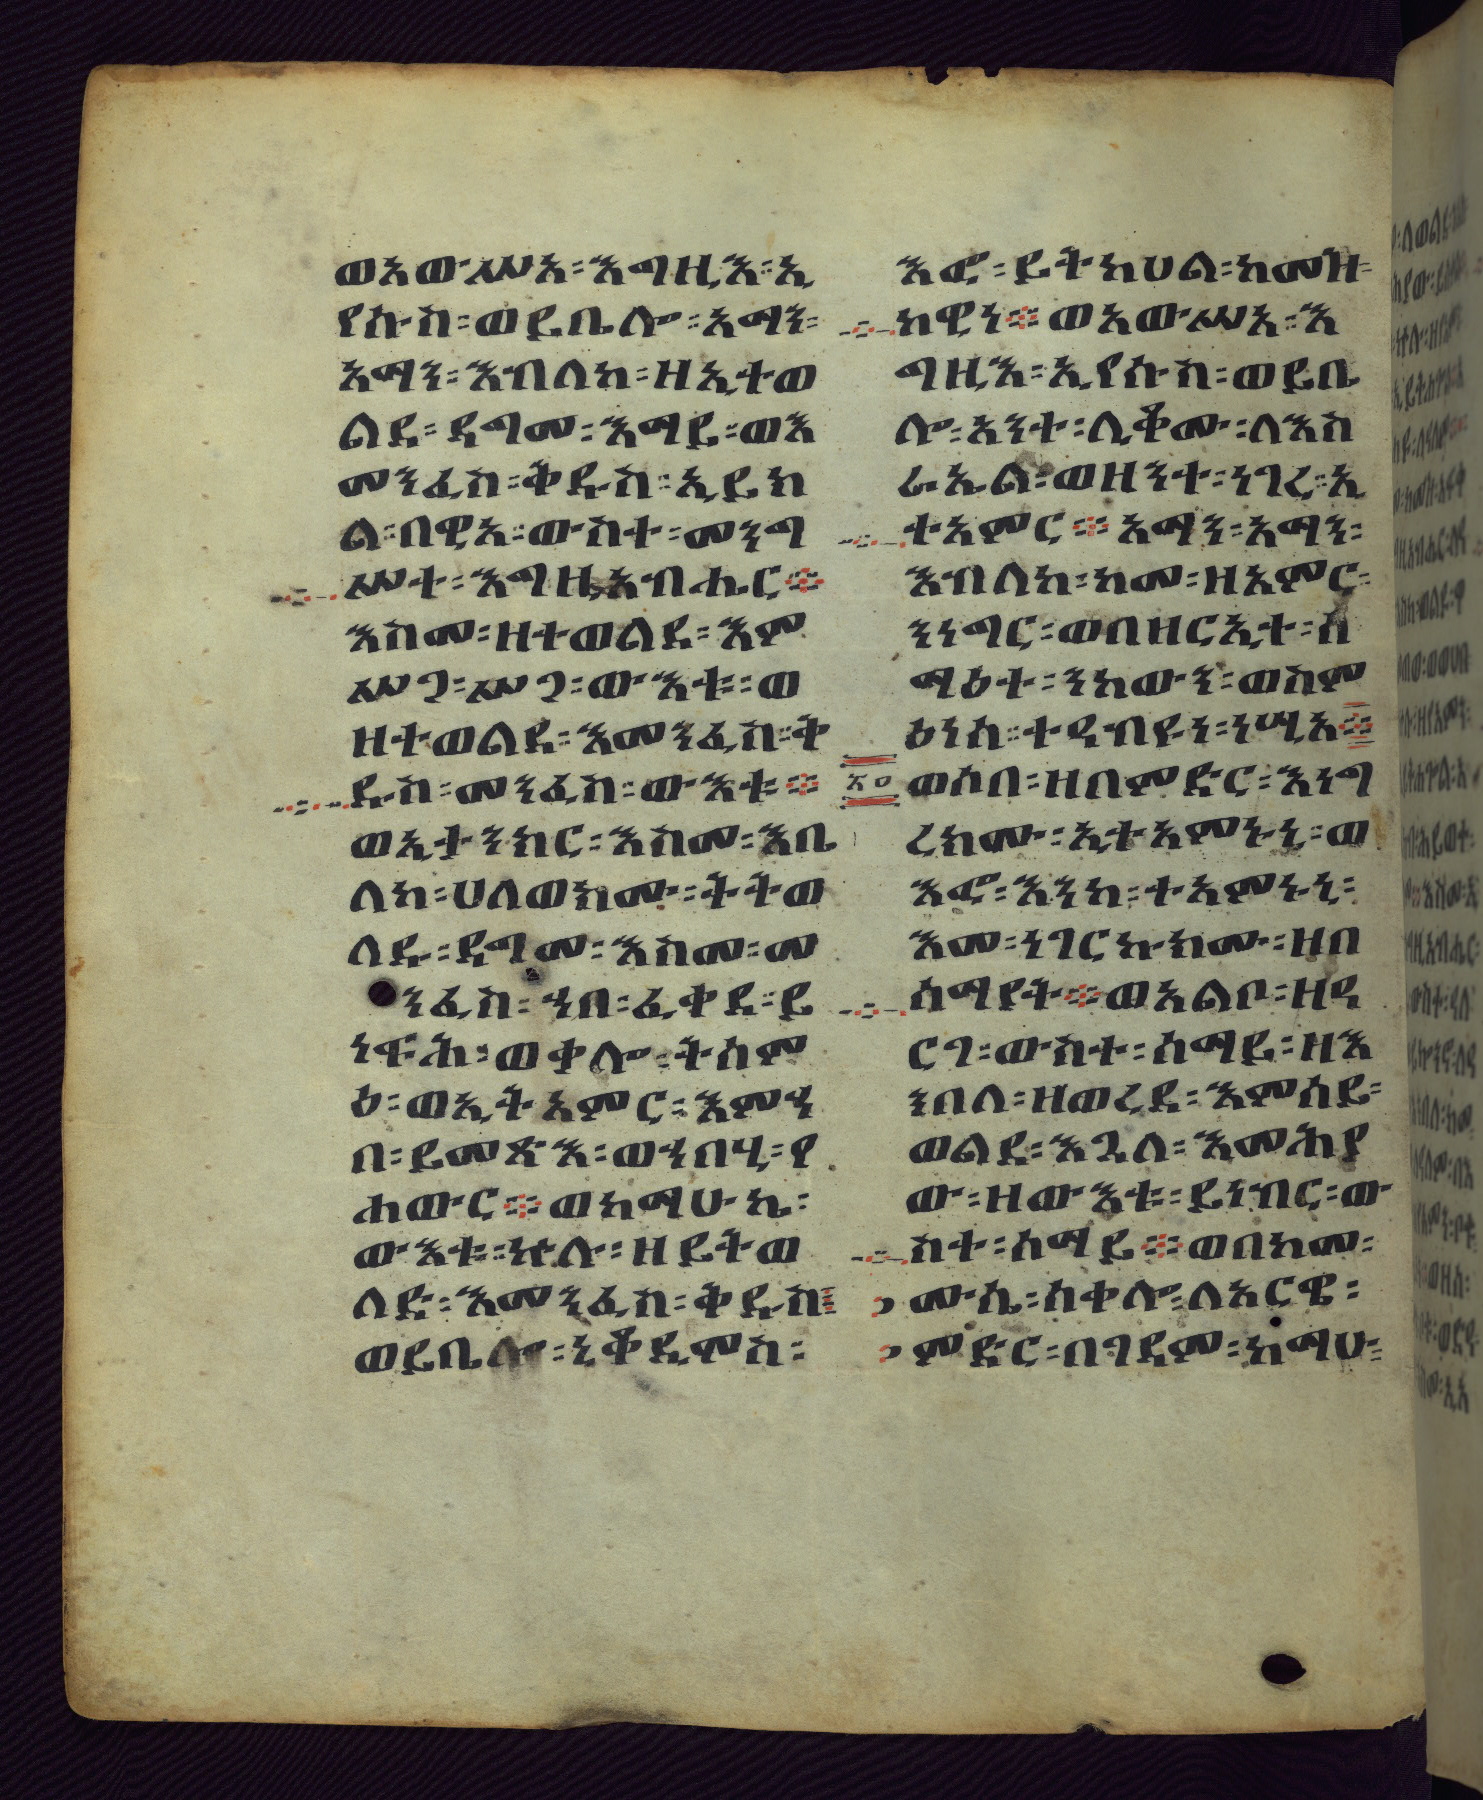 ወአውሥአ፡እግዚእ፡ኢ
የሱስ፡ወይቤሎ፡አማን፡
አማን፡እብለከ፡ዘኢተወ
ልደ፡ዳግመ፡እማይ፡ወእ
መንፈስ፡ቅዱስ፡ኢይክ
ል፡በዊአ፡ውስተ፡መንግ
ሥተ፡እግዚአብሔር፨
እስመ፡ዘተወልደ፡እም
ሥጋ፡ሥጋ፡ውእቱ፡ወ
ዘተወልደ፡እመንፈስ፡ቅ
ዱስ፡መንፈስ፡ውእቱ፨
ወኢትንክር፡እስመ፡እቤ
ለከ፡ሀለወክሙ፡ትትወ
ለዱ፡ዳግመ፡እስመ፡መ
ንፈስ፡ኀበ፡ፈቀደ፡ይ
ነፍሕ፡ወቃሎ፡ትሰም
ዕ፡ወኢትአምር፡እምኀ
በ፡ይመጽእ፡ወኀበሂ፡የ
ሐውር፨ወከማሁኬ፡
ውእቱ፡ኵሉ፡ዘይትወ
ለድ፡እመንፈስ፡ቅዱስ፨
ወይቤሎ፡ኒቆዲሞስ፡
እፎ፡ይትከሀል፡ከመዝ፡
ከዊነ፨ወአውሥአ፡እ
ግዚእ፡ኢየሱስ፡ወይቤ
ሎ፡አንተ፡ሊቆሙ፡ለእስ
ራኤል፡ወዘንተ፡ነገረ፡ኢ
ተአምር፨አማን፡አማን፡
እብለከ፡ከመ፡ዘአምር፡
ንነግር፡ወበዘርኢተ፡ሰ
ማዕተ፡ንከውን፡ወስም
ዕነሰ፡ተዳብዮን፡ነሢአ፨
፳፬
ወሶበ፡ዘበምድር፡እነግ
ረክሙ፡ኢተአምኑኒ፡ወ
እፎ፡እንከ፡ተአምኑኒ፡
እመ፡ነገርኩክሙ፡ዘበ
ሰማያት፨ወአልቦ፡ዘዓ
ርገ፡ውስተ፡ሰማይ፡ዘእ
ንበለ፡ዘወረደ፡እምሰማይ፡
ወልደ፡እጓለ፡እመሕያ
ው፡ዘውእቱ፡ይነብር፡ው
ስተ፡ሰማይ፨ወበከመ፡
ሙሴ፡ሰቀሎ፡ለአርዌ፡
ምድር፡በገዳም፡ከማሁ፡